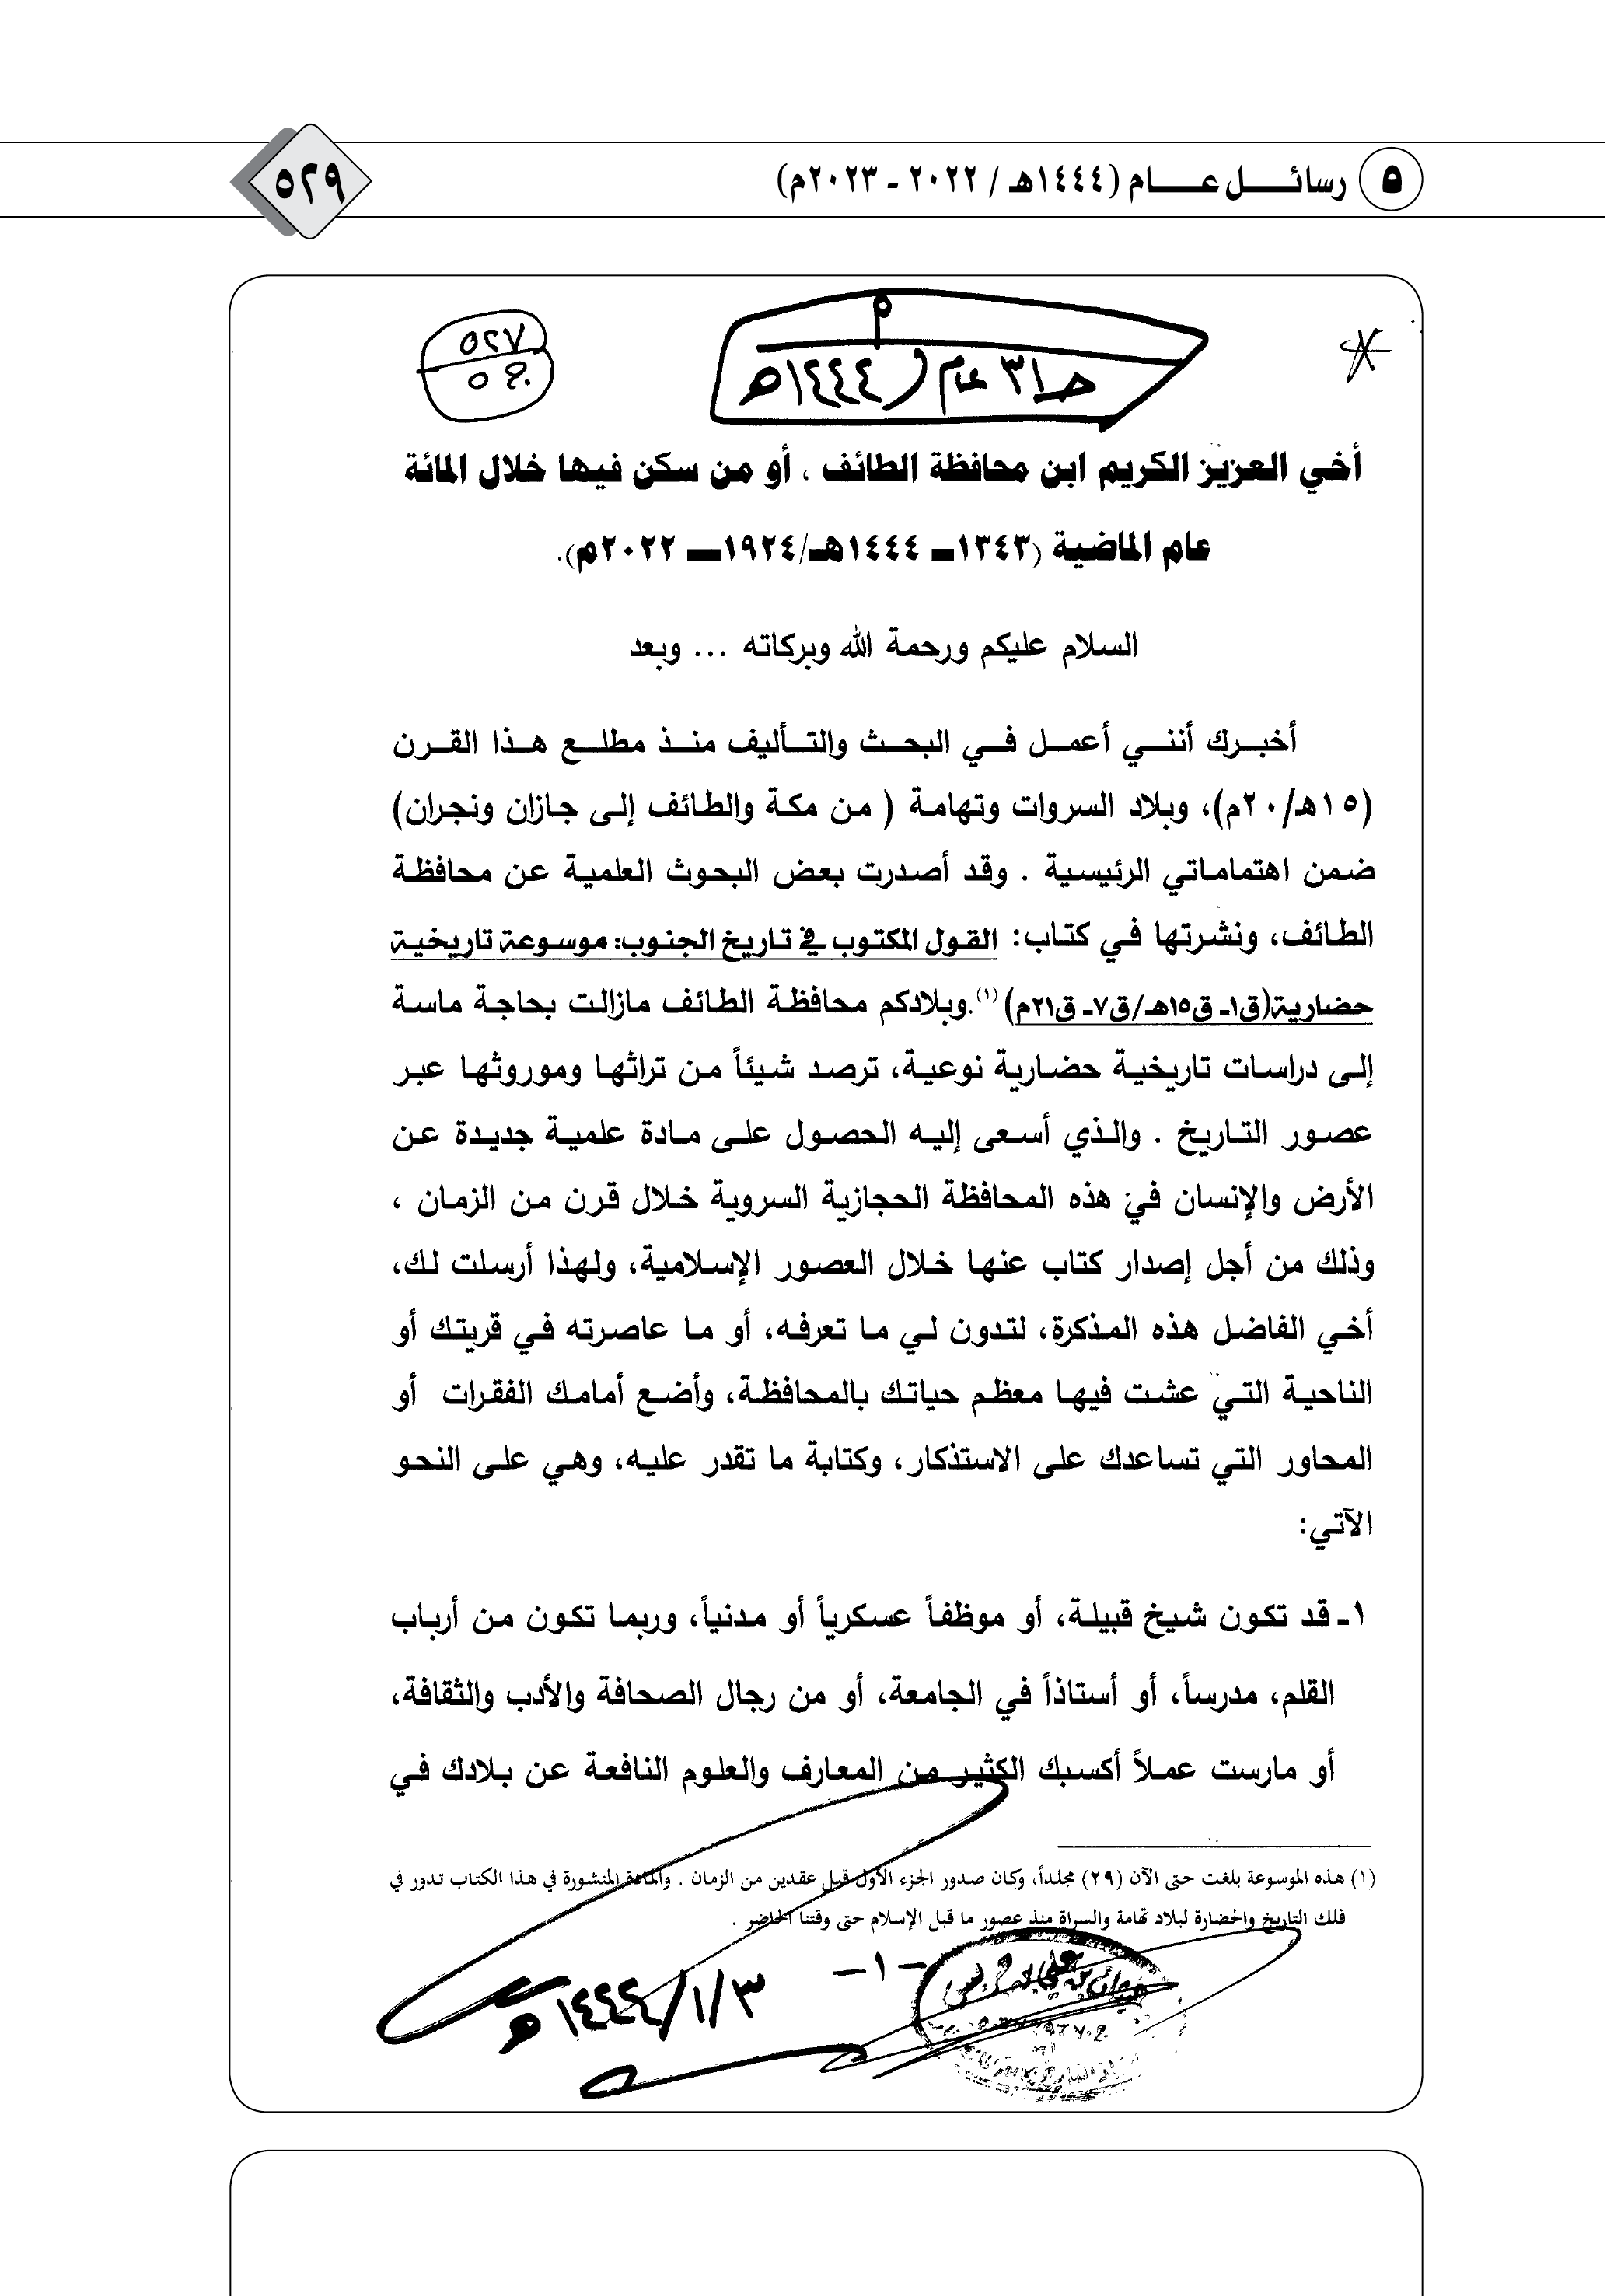 ٥ رسائل عام (١٤٤٤هـ / ٢٠٢٢ - ٢٠٢٣م)
٥٢٩
٥٢٧
م
حـ٣١ عام ١٤٤٤هـ
أخي العزيز الكريم ابن محافظة الطائف ، أو من سكن فيها خلال المائة
عام الماضية (١٣٤٣ــ ١٤٤٤هـ/١٩٢٤ــ ٢٠٢٢م).
السلام عليكم ورحمة الله وبركاته ... وبعد
أخبرك أنني أعمل في البحث والتأليف منذ مطلع هذا القرن
(١٥هـ/٢٠م)، وبلاد السروات وتهامة ( من مكة والطائف إلى جازان ونجران)
ضمن اهتماماتي الرئيسية . وقد أصدرت بعض البحوث العلمية عن محافظة
الطائف، ونشرتها في كتاب: القول المكتوب في تاريخ الجنوب: موسوعة تاريخية
حضارية(ق١ـ ق١٥هـ/ق٧ـ ق٢١م) (١).وبلادكم محافظة الطائف مازالت بحاجة ماسة
إلى دراسات تاريخية حضارية نوعية، ترصد شيئاً من تراثها وموروثها عبر
عصور التاريخ . والذي أسعى إليه الحصول على مادة علمية جديدة عن
الأرض والإنسان في هذه المحافظة الحجازية السروية خلال قرن من الزمان ،
وذلك من أجل إصدار كتاب عنها خلال العصور الإسلامية، ولهذا أرسلت لك،
أخي الفاضل هذه المذكرة، لتدون لي ما تعرفه، أو ما عاصرته في قريتك أو
الناحية التي عشت فيها معظم حياتك بالمحافظة، وأضع أمامك الفقرات أو
المحاور التي تساعدك على الاستذكار، وكتابة ما تقدر عليه، وهي على النحو
الآتي:
١ـ قد تكون شيخ قبيلة، أو موظفاً عسكرياً أو مدنياً، وربما تكون من أرباب
القلم، مدرساً، أو أستاذاً في الجامعة، أو من رجال الصحافة والأدب والثقافة،
أو مارست عملاً أكسبك الكثير من المعارف والعلوم النافعة عن بلادك في
(١) هذه الموسوعة بلغت حتى الآن (٢٩) مجلداً، وكان صدور الجزء الأول قبل عقدين من الزمان . والمادة المنشورة في هذا الكتاب تدور في
فلك التاريخ والحضارة لبلاد تهامة والسراة منذ عصور ما قبل الإسلام حتى وقتنا الحاضر .
-١-
١٤٤٤/١/٣هـ